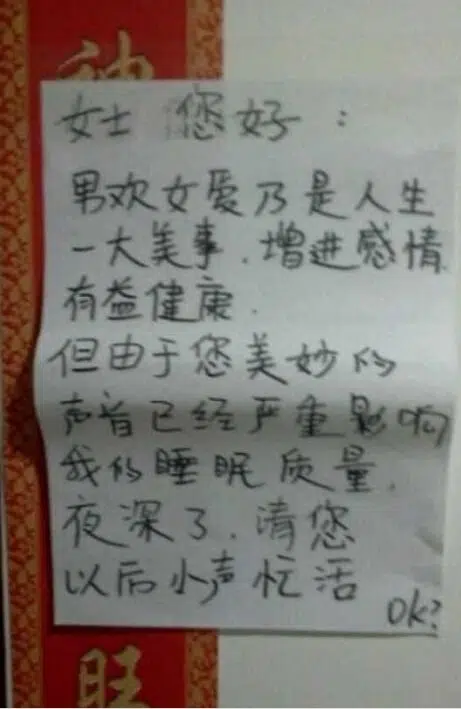 神
女士 您好：
男欢女爱乃是人生
一大美事.增进感情
有益健康.
但由于您美妙的
声音已经严重影响
我的睡眠质量.
夜深了.请您
以后小声忙活
ok?
旺